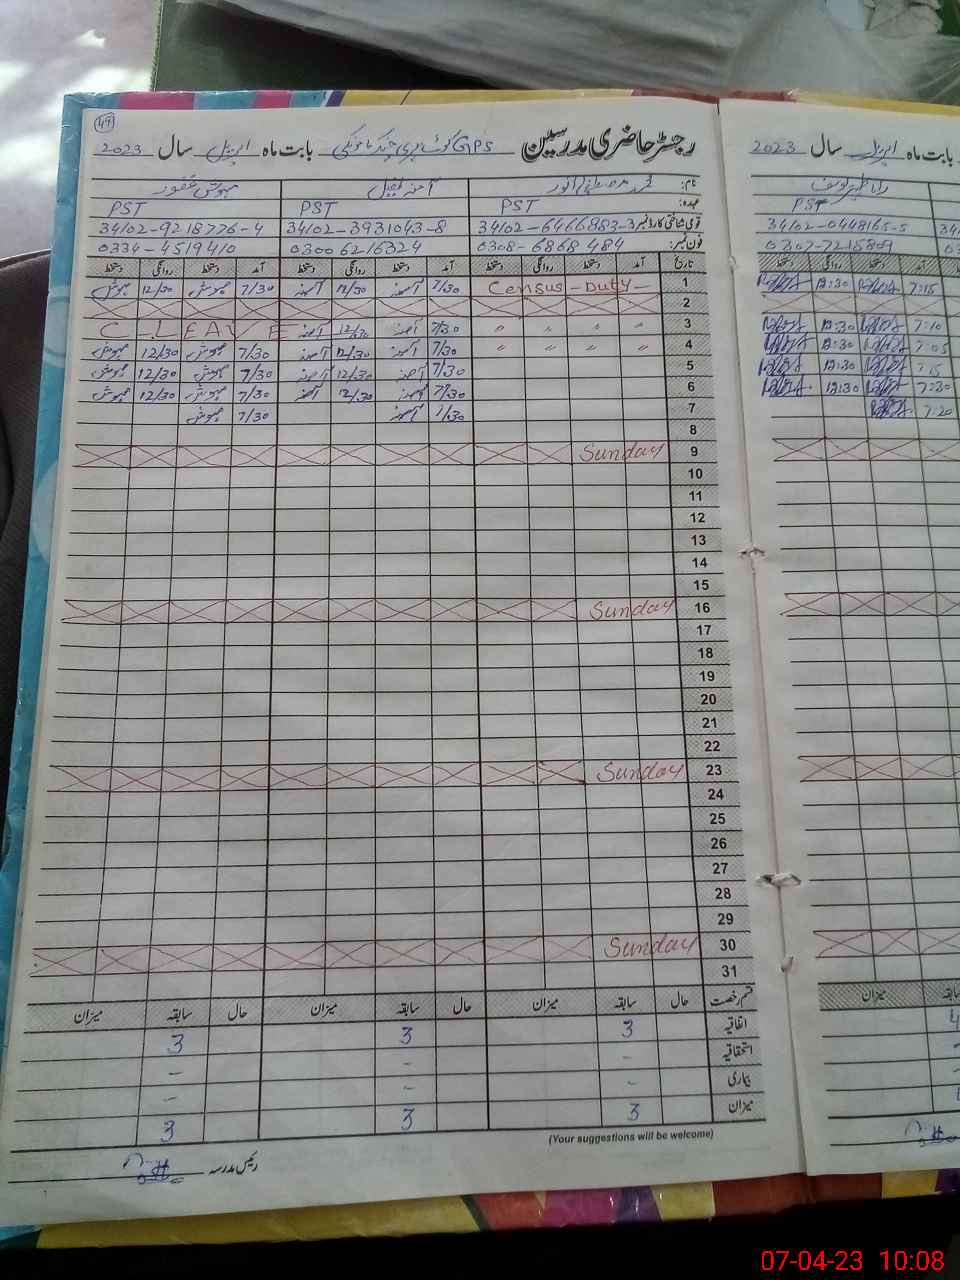 49
رجسٹر حاضری مدرسین GPS کوٹ ہری چند کامونکی بابت ماہ اپریل سال 2023
نام: آمنہ مہوش غفور
عہدہ: PST PST PST
قومی شناختی کارڈ نمبر 34102-6466883-3 34102-3931043-8 34102-9218776-4
فون نمبر: 0308-6868484 03006216324 0334-4519410
تاریخ آمد دستخط روانگی دستخط آمد دستخط روانگی دستخط آمد دستخط روانگی دستخط
1 Census - Duty - 7/30 آمنہ 12/30 آمنہ 7/30 مہوش 12/30 مہوش
2
3 〃 〃 〃 〃 7/30 آمنہ 12/30 آمنہ C-LEAVE
4 〃 〃 〃 〃 7/30 آمنہ 12/30 آمنہ 7/30 مہوش 12/30 مہوش
5 7/30 آمنہ 12/30 آمنہ 7/30 مہوش 12/30 مہوش
6 7/30 آمنہ 12/30 آمنہ 7/30 مہوش 12/30 مہوش
7 7/30 آمنہ 7/30 مہوش
8
9 Sunday
10
11
12
13
14
15
16 Sunday
17
18
19
20
21
22
23 Sunday
24
25
26
27
28
29
30 Sunday
31
قسم رخصت حال سابقہ میزان حال سابقہ میزان حال سابقہ میزان
اتفاقیہ 3 3 3
استحقاقیہ - - -
بیماری - - -
میزان 3 3 3
(Your suggestions will be welcome)
رئیس مدرسہ
بابت ماہ اپریل سال 2023
PST
34102-0448165-5
0307-7215809
آمد دستخط روانگی دستخط
7:15 12:30
7:10 12:30
7:05 12:30
7:15 12:30
7:20 12:30
7:20
میزان
07-04-23 10:08